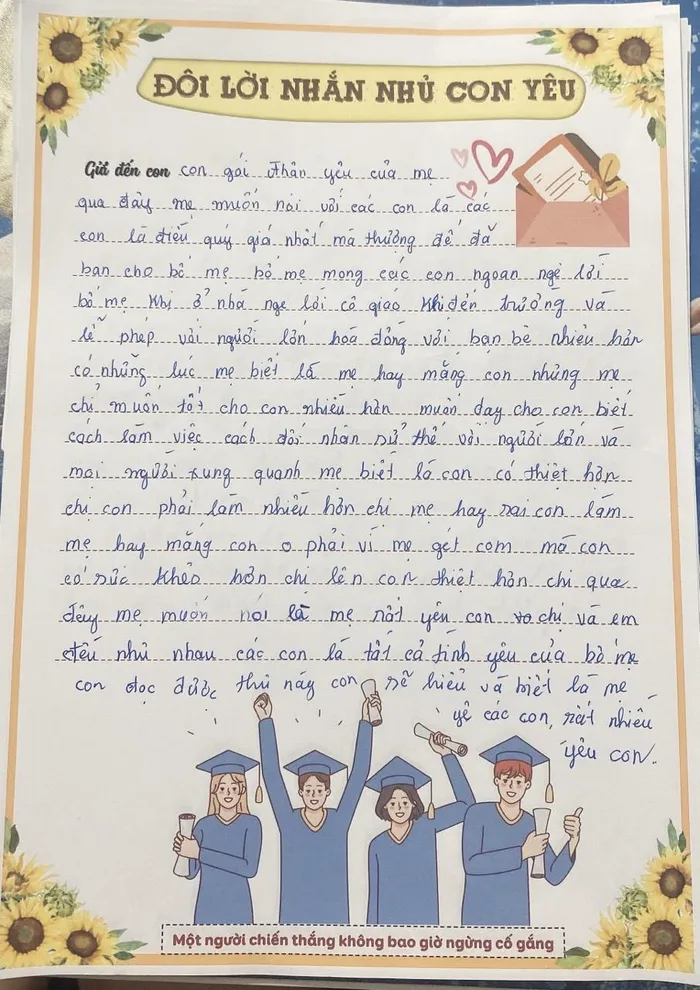 ĐÔI LỜI NHẮN NHỦ CON YÊU
Gửi đến con con gái thân yêu của mẹ
qua đây mẹ muốn nói với các con là các
con là điều quý giá nhất mà thượng đế đã
ban cho bố mẹ bố mẹ mong các con ngoan nge lời
bố mẹ khi ở nhà nge lời cô giáo khi đến trường và
lễ phép với người lớn hoà đồng với bạn bè nhiều hơn
có những lúc mẹ biết là mẹ hay mắng con nhưng mẹ
chỉ muốn tốt cho con nhiều hơn muốn dạy cho con biết
cách làm việc cách đối nhân sử thế với người lớn và
mọi người xung quanh mẹ biết là con có thiệt hơn
chị con phải làm nhiều hơn chị mẹ hay sai con làm
mẹ hay mắng con o phải vì mẹ gét com mà con
có sức khẻo hơn chị lên con thiệt hơn chị qua
đêy mẹ muốn nói là mẹ rất yêu con va chị và em
đều như nhau các con là tất cả tình yêu của bố mẹ
con đọc được thư này con sẽ hiểu và biết là mẹ
yê các con, rất nhiều
yêu con.
Một người chiến thắng không bao giờ ngừng cố gắng